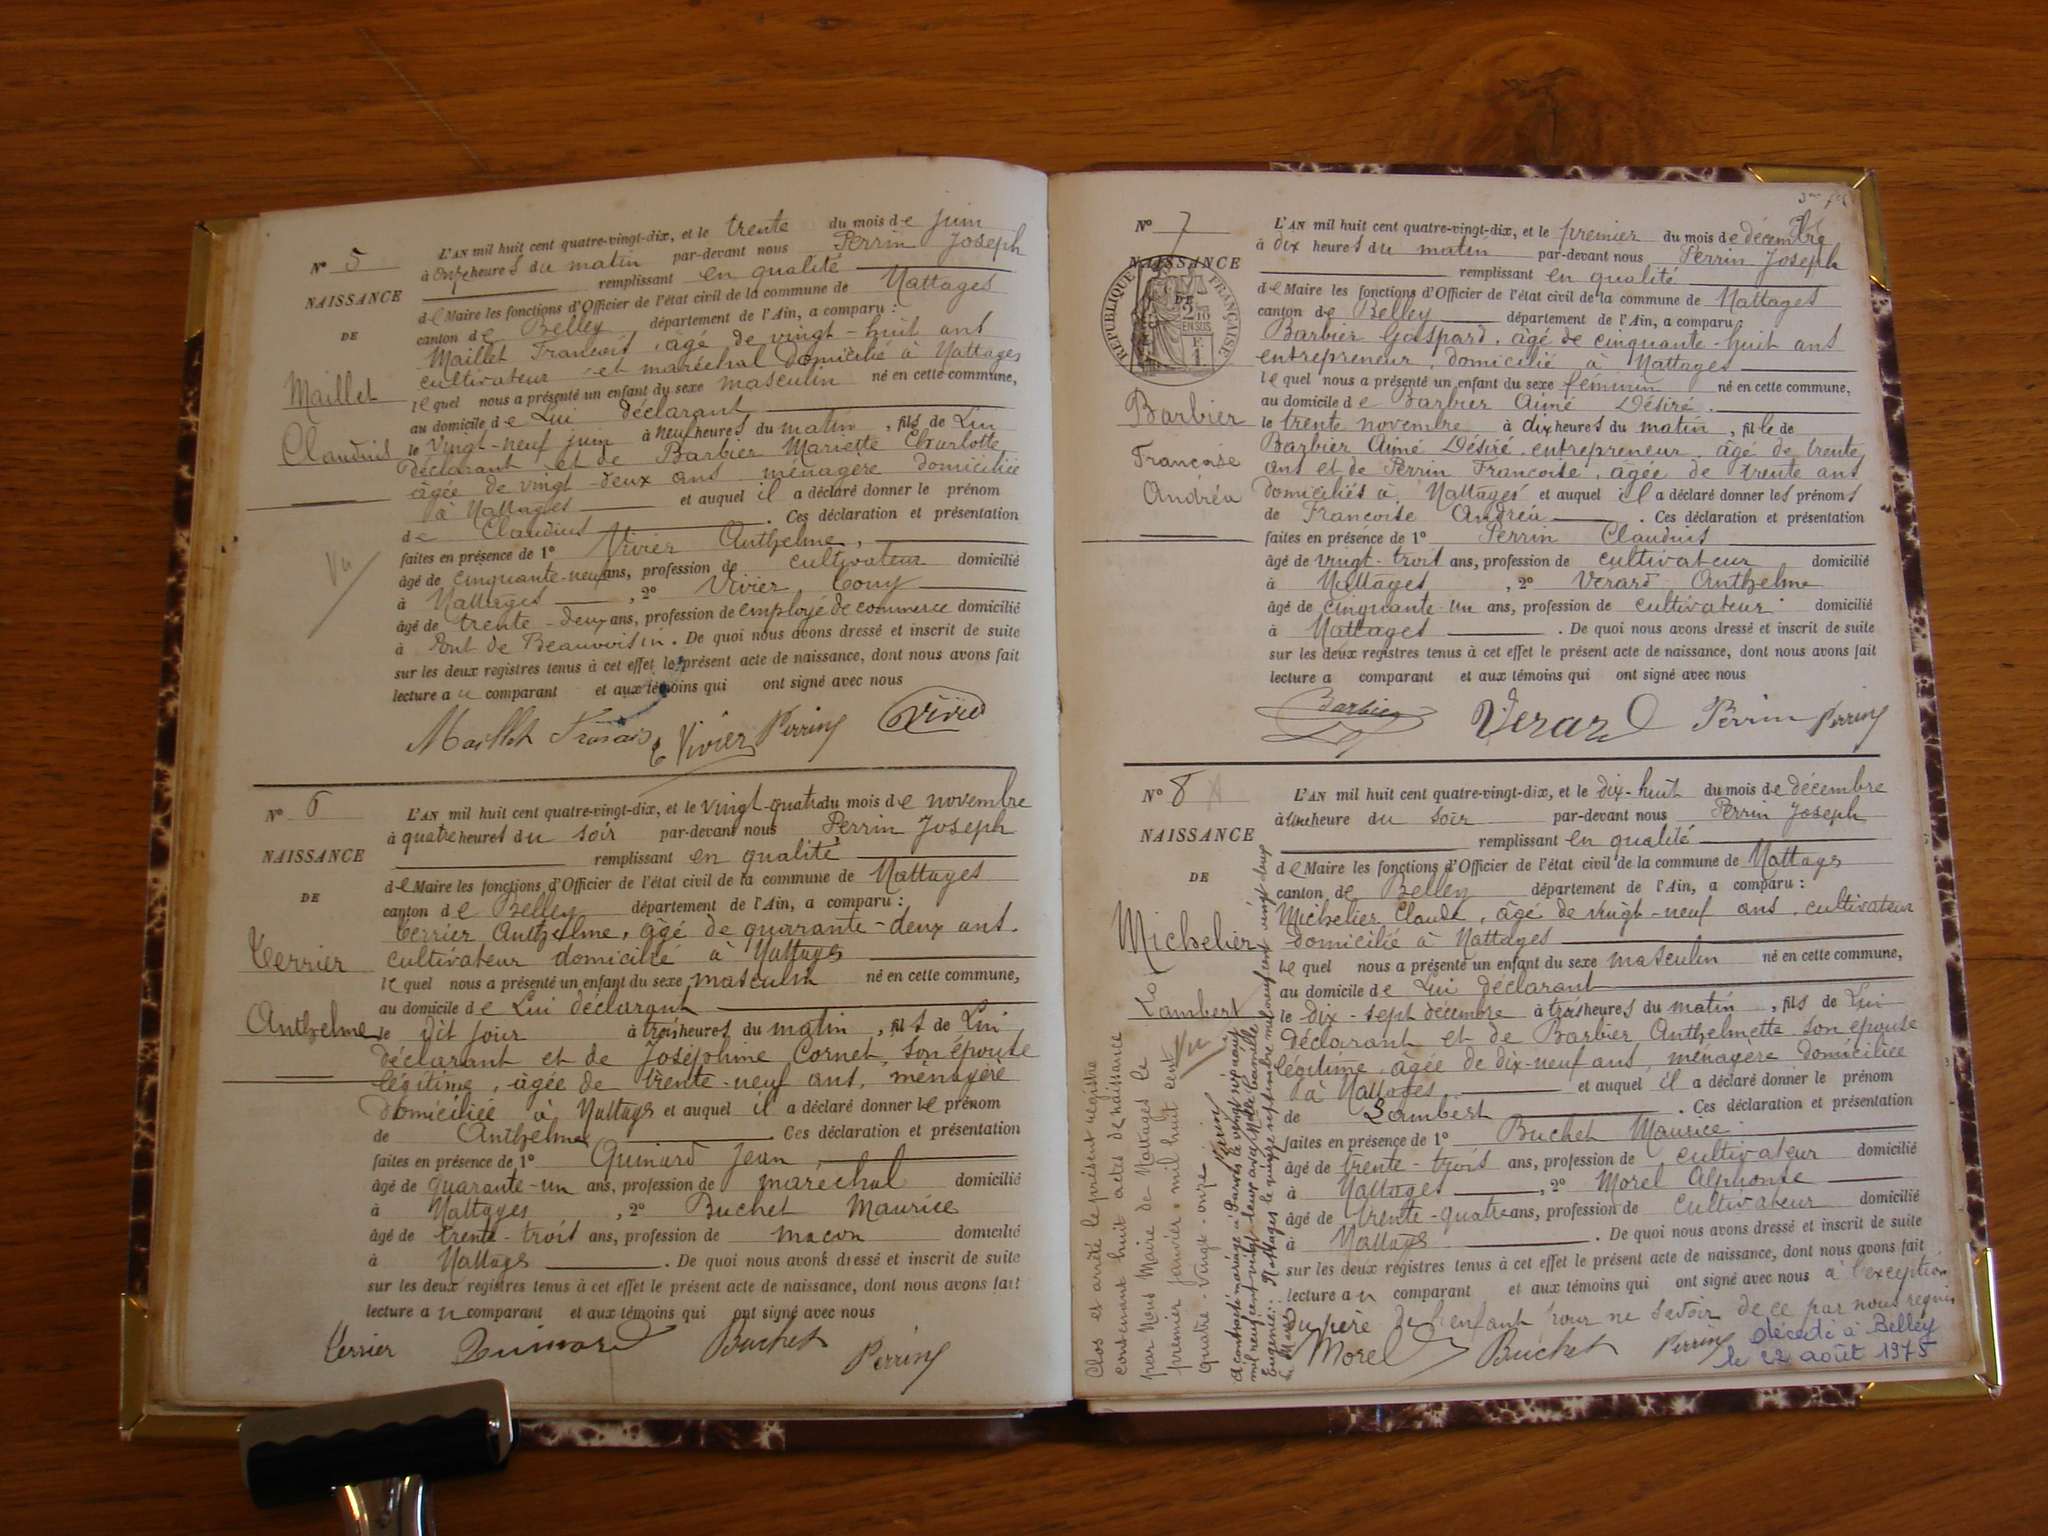 N° 5
NAISSANCE
DE
Maillet
Claudius
Vu
L'AN mil huit cent quatre-vingt-dix, et le trente du mois de juin
à onze heures du matin par-devant nous Perrin Joseph
remplissant en qualité
de Maire les fonctions d'Officier de l'état civil de la commune de Nattages
canton de Belley, département de l'Ain, a comparu :
Maillet Francois, âgé de vingt-huit ans
cultivateur et maréchal domicilié à Nattages
lequel nous a présenté un enfant du sexe masculin né en cette commune,
au domicile de Lui déclarant
le vingt-neuf juin à neuf heures du matin, fils de Lui
déclarant et de Barbier Mariette Charlotte
âgée de vingt-deux ans ménagère domiciliée
à Nattages et auquel il a déclaré donner le prénom
de Claudius. Ces déclaration et présentation
faites en présence de 1° Vivier Anthelme,
âgé de cinquante-neuf ans, profession de cultivateur domicilié
à Nattages, 2° Vivier Tony
âgé de trente-deux ans, profession de employé de commerce domicilié
à Pont de Beauvoisin. De quoi nous avons dressé et inscrit de suite
sur les deux registres tenus à cet effet le présent acte de naissance, dont nous avons fait
lecture au comparant et aux témoins qui ont signé avec nous
Maillet Francois Vivier Perrin J Vivier
N° 6
NAISSANCE
DE
Terrier
Anthelme
L'AN mil huit cent quatre-vingt-dix, et le vingt-quatre du mois de novembre
à quatre heures du soir par-devant nous Perrin Joseph
remplissant en qualité
de Maire les fonctions d'Officier de l'état civil de la commune de Nattages
canton de Belley département de l'Ain, a comparu :
Terrier Anthelme, âgé de quarante-deux ans.
cultivateur domicilié à Nattages
lequel nous a présenté un enfant du sexe masculin né en cette commune,
au domicile de Lui déclarant
le dit jour à trois heures du matin, fils de Lui
déclarant et de Joséphine Cornet, son épouse
légitime, âgée de trente-neuf ans, ménagère
domiciliée à Nattages et auquel il a déclaré donner le prénom
de Anthelme. Ces déclaration et présentation
faites en présence de 1° Guinard Jean,
âgé de quarante-un ans, profession de maréchal domicilié
à Nattages, 2° Buchet Maurice
âgé de trente-trois ans, profession de macon domicilié
à Nattages. De quoi nous avons dressé et inscrit de suite
sur les deux registres tenus à cet effet le présent acte de naissance, dont nous avons fait
lecture au comparant et aux témoins qui ont signé avec nous
Terrier Guinard Buchet Perrin J
N° 7
NAISSANCE
DE
RÉPUBLIQUE FRANÇAISE
2/10 EN SUS
Barbier
Francoise
Andréa
L'AN mil huit cent quatre-vingt-dix, et le premier du mois de décembre
à dix heures du matin par-devant nous Perrin Joseph
remplissant en qualité
de Maire les fonctions d'Officier de l'état civil de la commune de Nattages
canton de Belley département de l'Ain, a comparu
Barbier Gaspard, âgé de cinquante-huit ans
entrepreneur, domicilié à Nattages
lequel nous a présenté un enfant du sexe féminin né en cette commune,
au domicile de Barbier Aimé Désiré.
le trente novembre à dix heures du matin, fille de
Barbier Aimé Désiré, entrepreneur, âgé de trente
ans et de Perrin Francoise, âgée de trente ans
domiciliés à Nattages et auquel il a déclaré donner les prénoms
de Francoise Andréa. Ces déclaration et présentation
faites en présence de 1° Perrin Claudius
âgé de vingt-trois ans, profession de cultivateur domicilié
à Nattages, 2° Verard Anthelme
âgé de cinquante-un ans, profession de cultivateur domicilié
à Nattages. De quoi nous avons dressé et inscrit de suite
sur les deux registres tenus à cet effet le présent acte de naissance, dont nous avons fait
lecture a comparant et aux témoins qui ont signé avec nous
Barbier Verard Perrin Perrin J
N° 8
NAISSANCE
DE
Michelier
Lambert
Vu
L'AN mil huit cent quatre-vingt-dix, et le dix-huit du mois de décembre
à une heure du soir par-devant nous Perrin Joseph
remplissant en qualité
de Maire les fonctions d'Officier de l'état civil de la commune de Nattages
canton de Belley département de l'Ain, a comparu :
Michelier Claude, âgé de vingt-neuf ans, cultivateur
domicilié à Nattages
lequel nous a présenté un enfant du sexe masculin né en cette commune,
au domicile de Lui déclarant
le dix-sept décembre à trois heures du matin, fils de Lui
déclarant et de Barbier Anthelmette son épouse
légitime, âgée de dix-neuf ans, ménagère domiciliée
à Nattages et auquel il a déclaré donner le prénom
de Lambert. Ces déclaration et présentation
faites en présence de 1° Buchet Maurice
âgé de trente-trois ans, profession de cultivateur domicilié
à Nattages, 2° Morel Alphonse
âgé de trente-quatre ans, profession de cultivateur domicilié
à Nattages. De quoi nous avons dressé et inscrit de suite
sur les deux registres tenus à cet effet le présent acte de naissance, dont nous avons fait
lecture au comparant et aux témoins qui ont signé avec nous à l'exception
du père de l'enfant pour ne savoir de ce par nous requis
Morel Buchet Perrin J
Décédé à Belley
le 22 août 1975
Clos et arrêté le présent registre
contenant huit actes de naissance
par Nous Maire de Nattages le
premier janvier mil huit cent
quatre-vingt-onze
Perrin
A contracté mariage à
mil neuf cent vingt deux avec
Eugénie. Nattages le quinze septembre mil neuf cent vingt deux
Le Maire